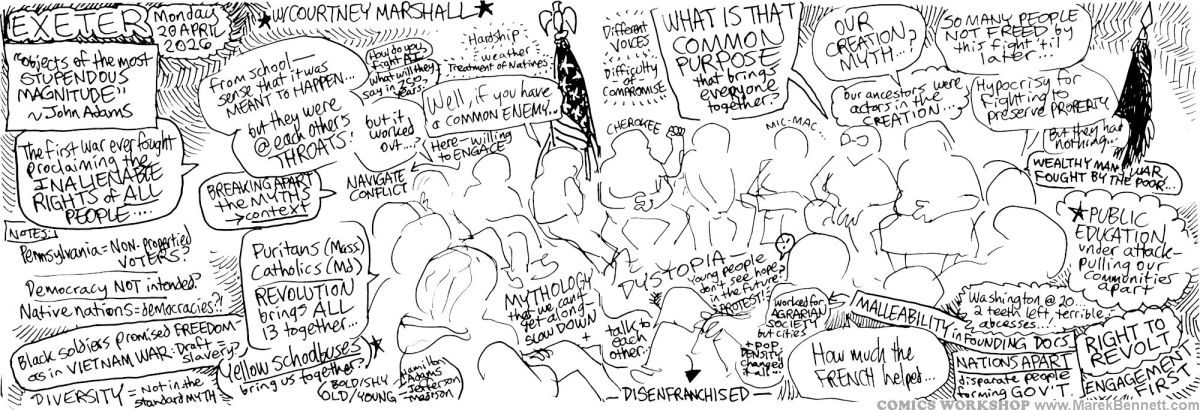 EXETER
Monday
20 APRIL
2026
★W/COURTNEY MARSHALL★
"Objects of the most
STUPENDOUS
MAGNITUDE"
~John Adams
The first war ever fought
proclaiming the
INALIENABLE
RIGHTS of ALL
PEOPLE....
NOTES:
Pennsylvania = NON-propertied
VOTERS?
Democracy NOT intended?
Native nations = democracies?!
Black soldiers promised FREEDOM-
as in VIETNAM WAR: Draft =
slavery?
DIVERSITY = Not in the
standard MYTH
From school—
sense that it was
MEANT TO HAPPEN...
but they were
@ each other's
THROATS!
How do you
fight AI
what will they
say in 200
years?
Hardship
weather
Treatment of Natives
but it
worked
out...?
Well, if you have
a COMMON ENEMY...
Here—willing
to ENGAGE
NAVIGATE
CONFLICT
BREAKING APART
the MYTHS
→context
Puritans (Mass)
Catholics (Md)
REVOLUTION
brings ALL
13 together...
Yellow Schoolbuses
bring us together?
BOLD/SHY
OLD/YOUNG
Hamilton
Adams
Jefferson
Madison
Different
VOICES
Difficulty
of
COMPROMISE
WHAT IS THAT
COMMON
PURPOSE
that brings
everyone
together?
CHEROKEE
MIC-MAC...
OUR
CREATION
MYTH...?
our ancestors were
actors in the
CREATION...
SO MANY PEOPLE
NOT FREED by
this fight 'til
later...
Hypocrisy for
Fighting to
preserve PROPERTY
But they had
nothing...
WEALTHY MAN'S WAR
FOUGHT BY THE POOR...
★PUBLIC
EDUCATION
under attack—
Pulling our
communities
apart
MYTHOLOGY
that we can't
get along—
SLOW DOWN
+
talk to
each
other.
DYSTOPIA—
young people
don't see hope?
in the future
PROTEST!?
Worked for
AGRARIAN
SOCIETY
but cities
+ POP.
DENSITY
changed
it all...
—DISENFRANCHISED—
How much the
FRENCH helped...
MALLEABILITY
in FOUNDING DOCS
Washington @ 20...
2 teeth left, terrible
abscesses....
NATIONS APART
disparate people
forming GOV'T.
RIGHT TO
REVOLT
ENGAGEMENT
FIRST.
COMICS WORKSHOP www.MarekBennett.com